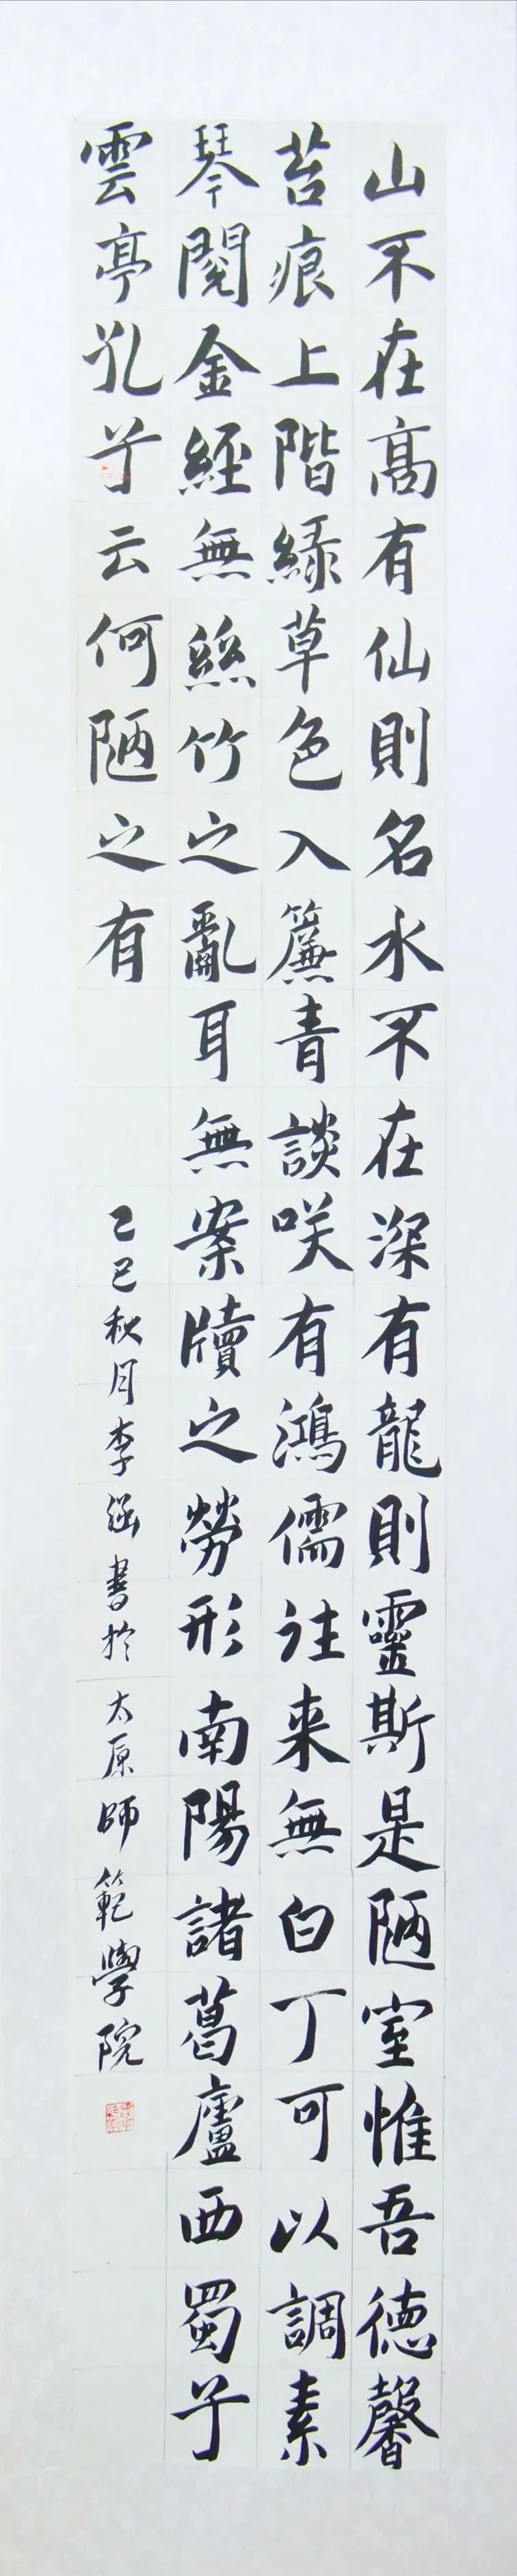 山不在高有仙則名水不在深有龍則靈斯是陋室惟吾德馨
苔痕上階緑草色入簾青談咲有鴻儒往来無白丁可以調素
琴閱金經無絲竹之亂耳無案牘之勞形南陽諸葛廬西蜀子
雲亭孔子云何陋之有
乙巳秋月李函書於太原師範學院